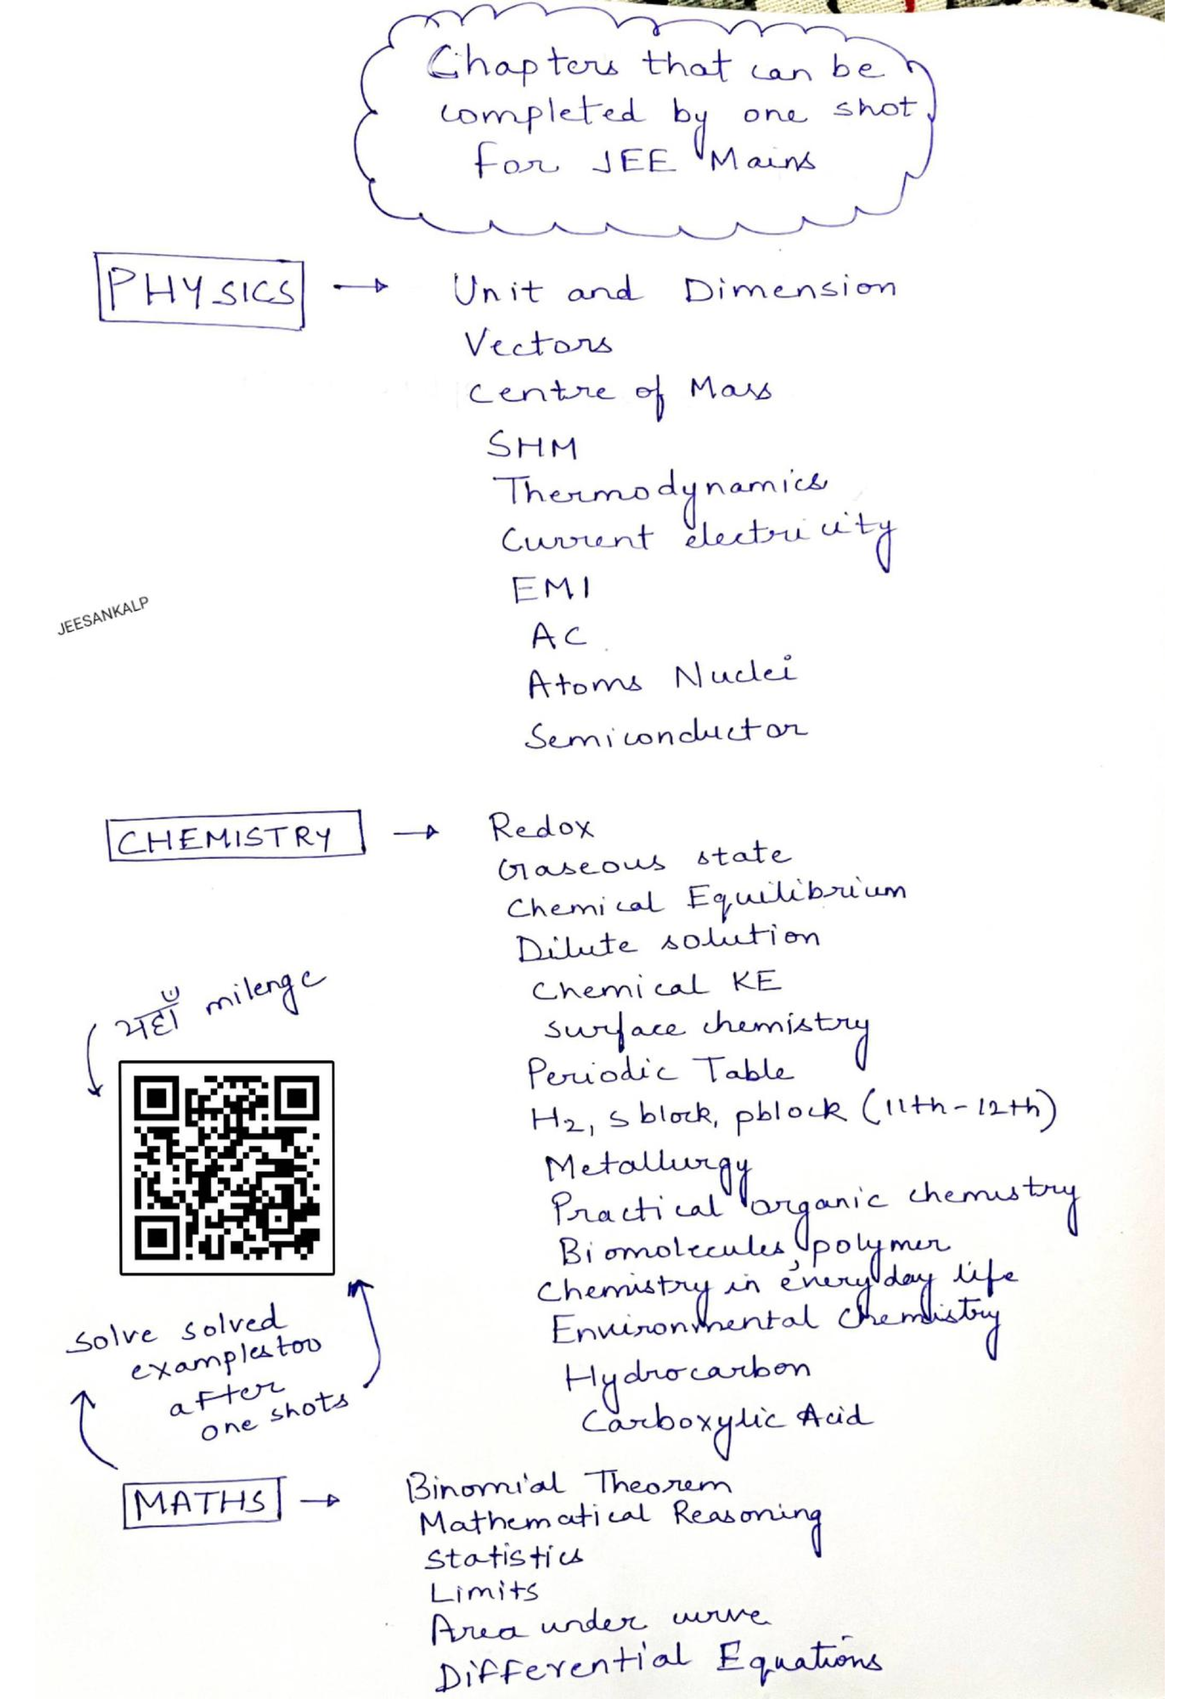 Chapters that can be
completed by one shot
for JEE Mains
PHYSICS → Unit and Dimension
Vectors
Centre of Mass
SHM
Thermodynamics
Current electricity
EMI
JEESANKALP
AC
Atoms Nuclei
Semiconductor
CHEMISTRY → Redox
Gaseous state
Chemical Equilibrium
Dilute solution
Chemical KE
Surface chemistry
Periodic Table
H2, s block, pblock (11th-12th)
Metallurgy
Practical organic chemistry
Biomolecules, polymer
Chemistry in everyday life
Environmental chemistry
Hydrocarbon
Carboxylic Acid
यहाँ milenge
Solve solved
examples too
after
one shots
MATHS → Binomial Theorem
Mathematical Reasoning
Statistics
Limits
Area under curve
Differential Equations